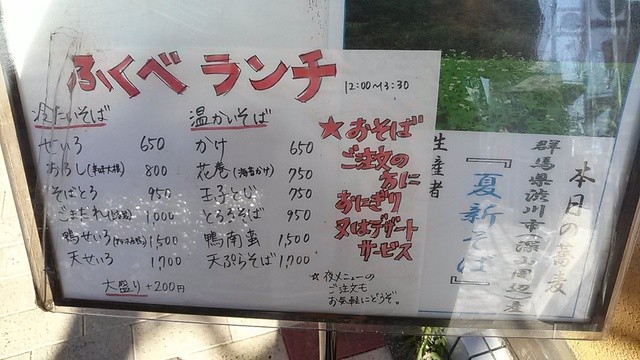 ふくべ ランチ 12:00~13:30
冷たいそば
せいろ 650
おろし(辛味大根) 800
そばとろ 950
ごまだれ 1,000
鴨せいろ 1,500
天せいろ 1,700
大盛り +200円
温かいそば
かけ 650
花巻(海苔かけ) 750
玉子とじ 750
とろろそば 950
鴨南蛮 1,500
天ぷらそば 1,700
★おそば
ご注文の
方に
おにぎり
又はデザート
サービス
★夜メニューの
ご注文も
お気軽にどうぞ。
本日の蕎麦
群馬県渋川市
周辺産
『夏新そば』
生産者